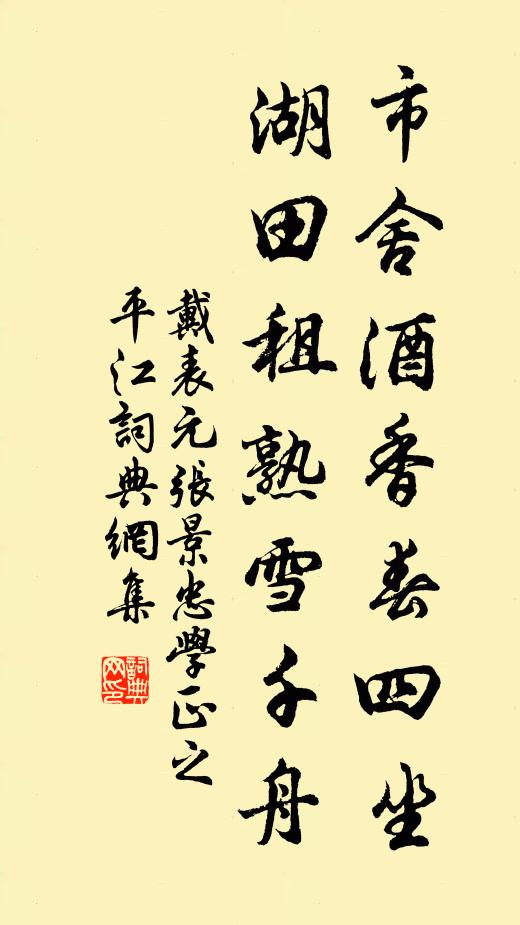 市舍酒香春四坐
湖田租熟雪千舟
戴表元張景忠學正之
平江詞典網集
詞典
网印